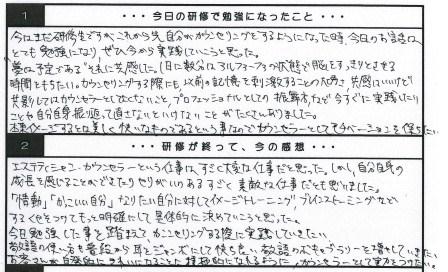 1 ・・・今日の研修で勉強になったこと・・・
今はまだ研修生ですが、これから先、自分がカウンセリングをするようになった時、今日のお話は
とても勉強になり、ぜひ今から実践していこうと思った。
"夢は予定である"それに共感した。1日に数分はアルファープラの状態で脳とすっきりとさせる
時間をもちたい。カウンセリングする際にも、以前の記憶を刺激することの大切さ、共感はいいけど
共影してはカウンセラーとしてはいけないこと、プロフェッショナルとしての振舞方など今すぐに実践したい
ことや自分自身振り返って直さないといけないことがたくさんありました。
本来イメージすることは楽しく快いなものであるという事なのでカウンセラーとしてモチベーションを保ちたい。
2 ・・・研修が終って、今の感想・・・
エステティシャン、カウンセラーという仕事は、すごく大変な仕事だと思った。しかし、自分自身の
成長を感じることができるとてもやりがいのあるすごく素敵な仕事だとも思いました。
「情動」「かっこいい自分」なりたい自分に対してイメージトレーニング、ブレインストーミングなど
するくせをつけてもっと明確にして具体的に決めていこうと思った。
今日勉強した事を踏まえてカウンセリングする際に実践していきたい。
敬語の使い方も普段から耳をジャンボにして快ち良い敬語のボキャブラリーを増やしていきたい。
お客さんが自発的にきれいになることに積極的になれるように、カウンセラーとして実力をつけたい。